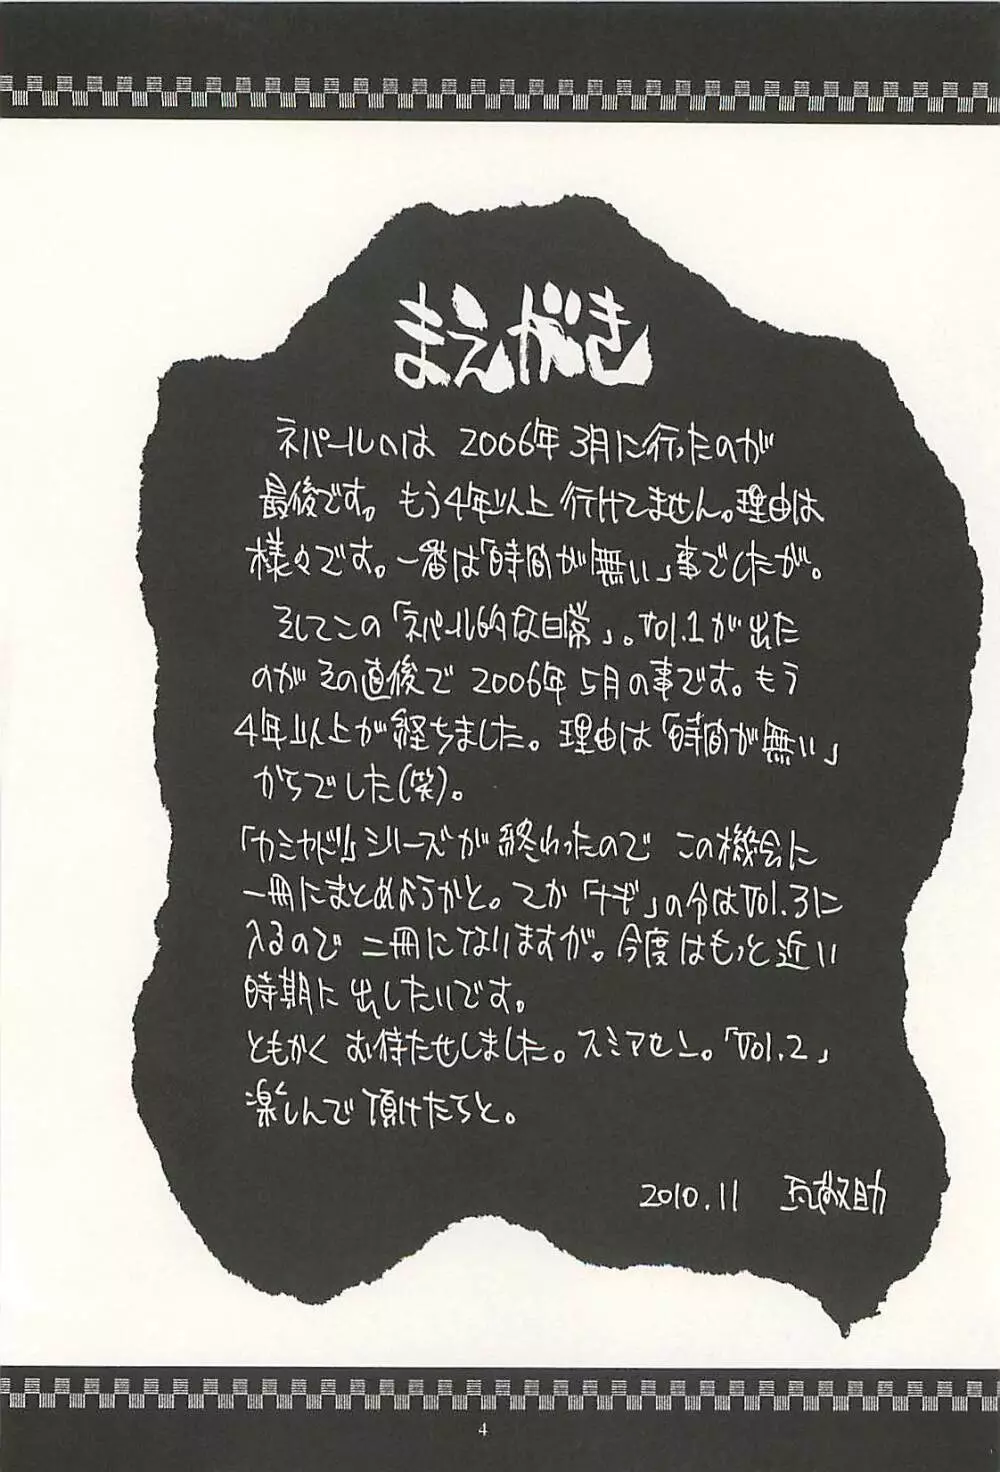 まえがき
ネパールへは 2006年3月に行ったのが
最後です。もう4年以上行けてません。理由は
様々です。一番は「時間が無い」事でしたが。
そしてこの「ネパール的な日常」。Vol.1が出た
のがその直後で 2006年5月の事です。もう
4年以上が経ちました。理由は「時間が無い」
からでした(笑)。
「カミヤドリ」シリーズが終わったので この機会に
一冊にまとめようかと。てか「ナギ」の分はVol.3に
入るので 二冊になりますが。今度はもっと近い
時期に出したいです。
ともかく お待たせしました。スミマセン。「Vol.2」
楽しんで頂けたらと。
2010.11 瓦敬助
4